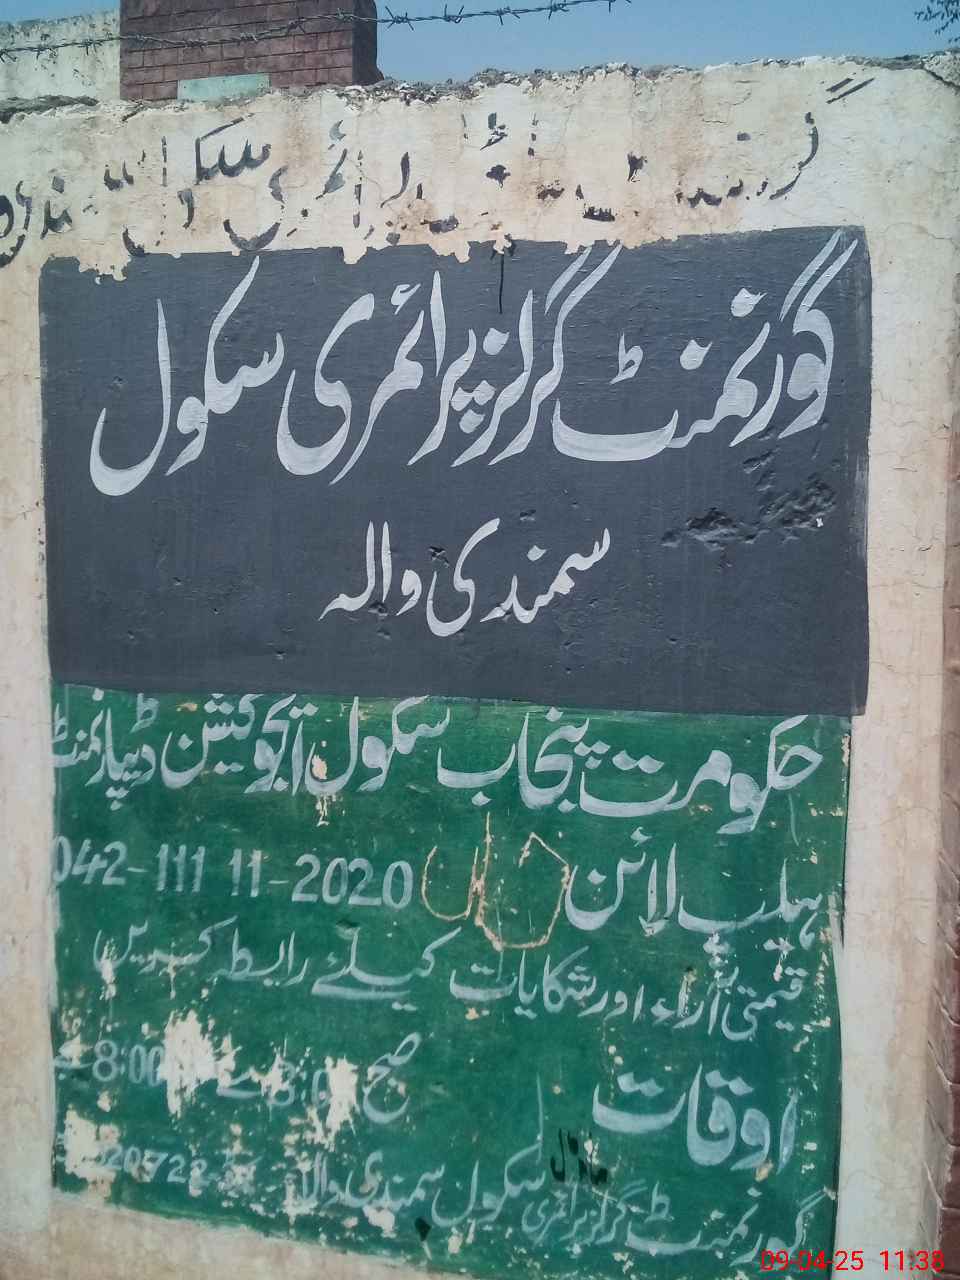 گورنمنٹ گرلز پرائمری سکول
سمندی والہ
حکومت پنجاب سکول ایجوکیشن ڈیپارٹمنٹ
ہیلپ لائن 042-111 11-2020
قیمتی آراء اور شکایات کیلئے رابطہ کریں
اوقات صبح 8:00
ماڈل
گورنمنٹ گرلز پرائمری سکول سمندی والا
09-04-25 11:38